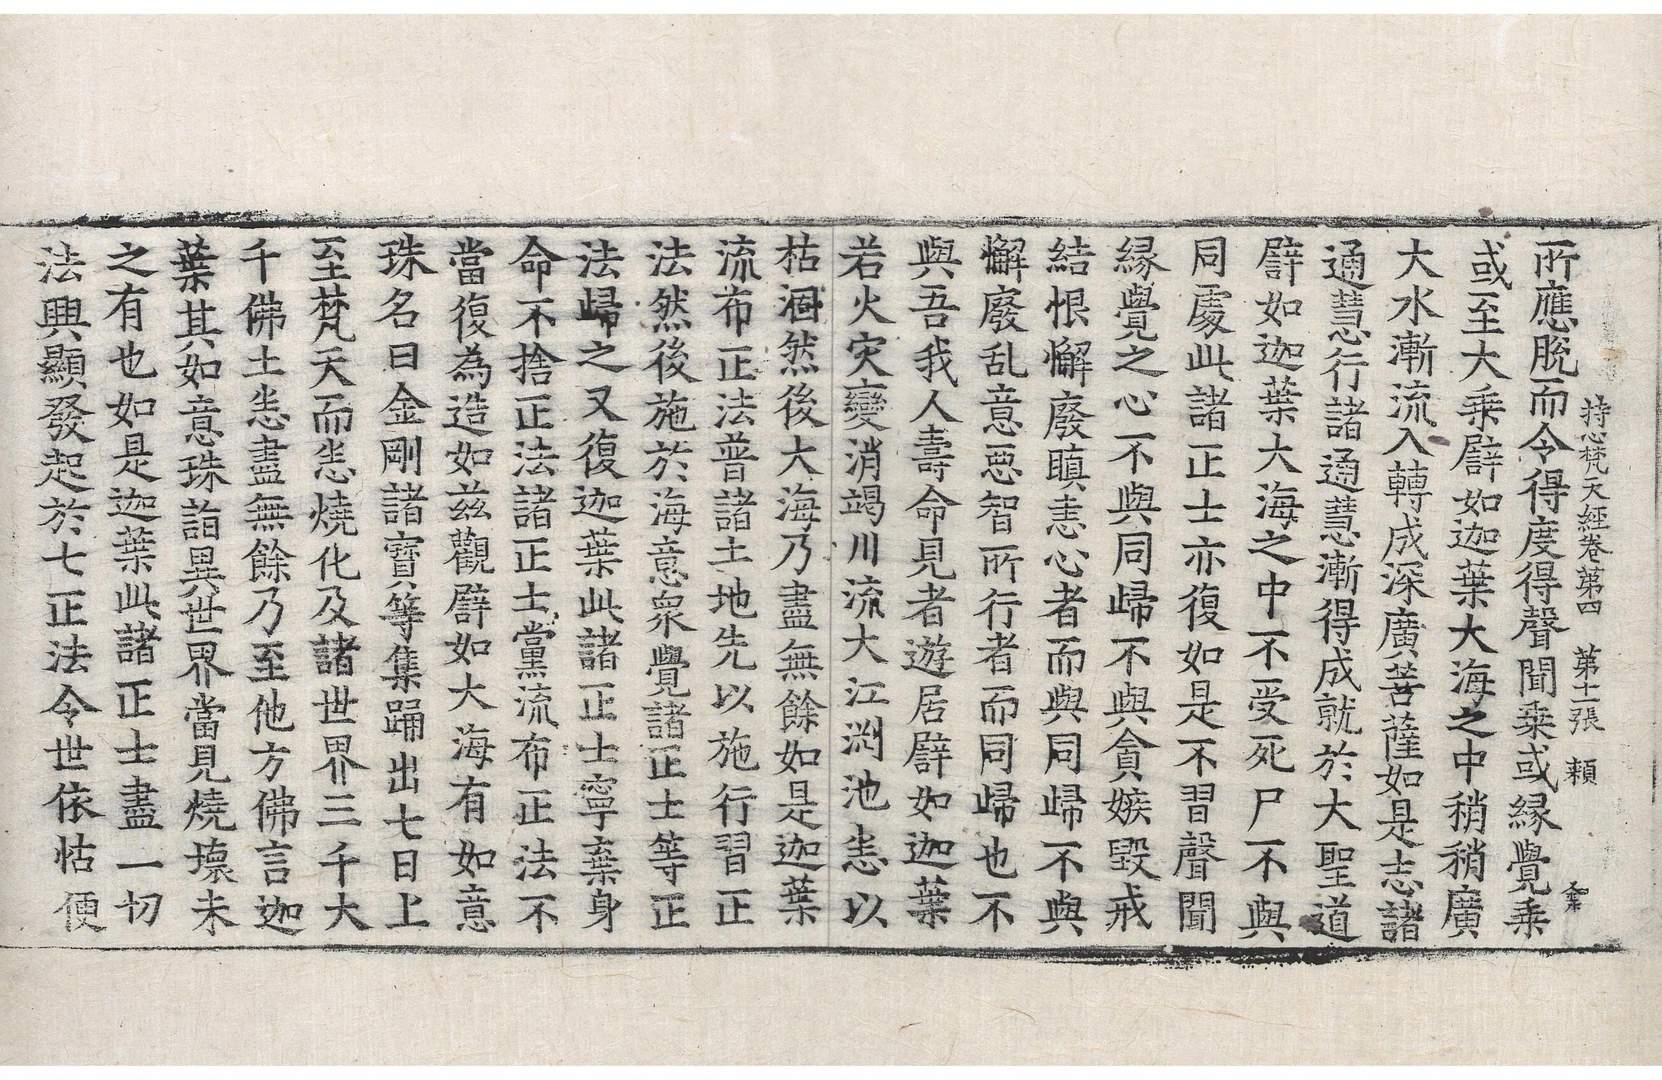 持心梵天經卷第四　第十二張　頼
所應脫而令得度得聲聞乗或縁覺乗
或至大乗譬如迦葉大海之中稍稍廣
大水漸流入轉成深廣菩薩如是志諸
通慧行諸通慧漸得成就於大聖道
譬如迦葉大海之中不受死尸不與
同處此諸正士亦復如是不習聲聞
縁覺之心不與同歸不與貪嫉毀戒
結恨懈廢瞋恚心者而與同歸不與
懈廢乱意惡智所行者而同歸也不
與吾我人壽命見者遊居譬如迦葉
若火灾變消竭川流大江渕池恚以
枯涸然後大海乃盡無餘如是迦葉
流布正法普諸土地先以施行習正
法然後施於海意衆覺諸正士等正
法歸之又復迦葉此諸正士寧棄身
命不捨正法諸正士黨流布正法不
當復為造如兹觀譬如大海有如意
珠名曰金剛諸寶等集踊出七日上
至梵天而恚燒化及諸世界三千大
千佛土恚盡無餘乃至他方佛言迦
葉其如意珠詣異世界當見燒壞未
之有也如是迦葉此諸正士盡一切
法興顯發起於七正法令世依怙便